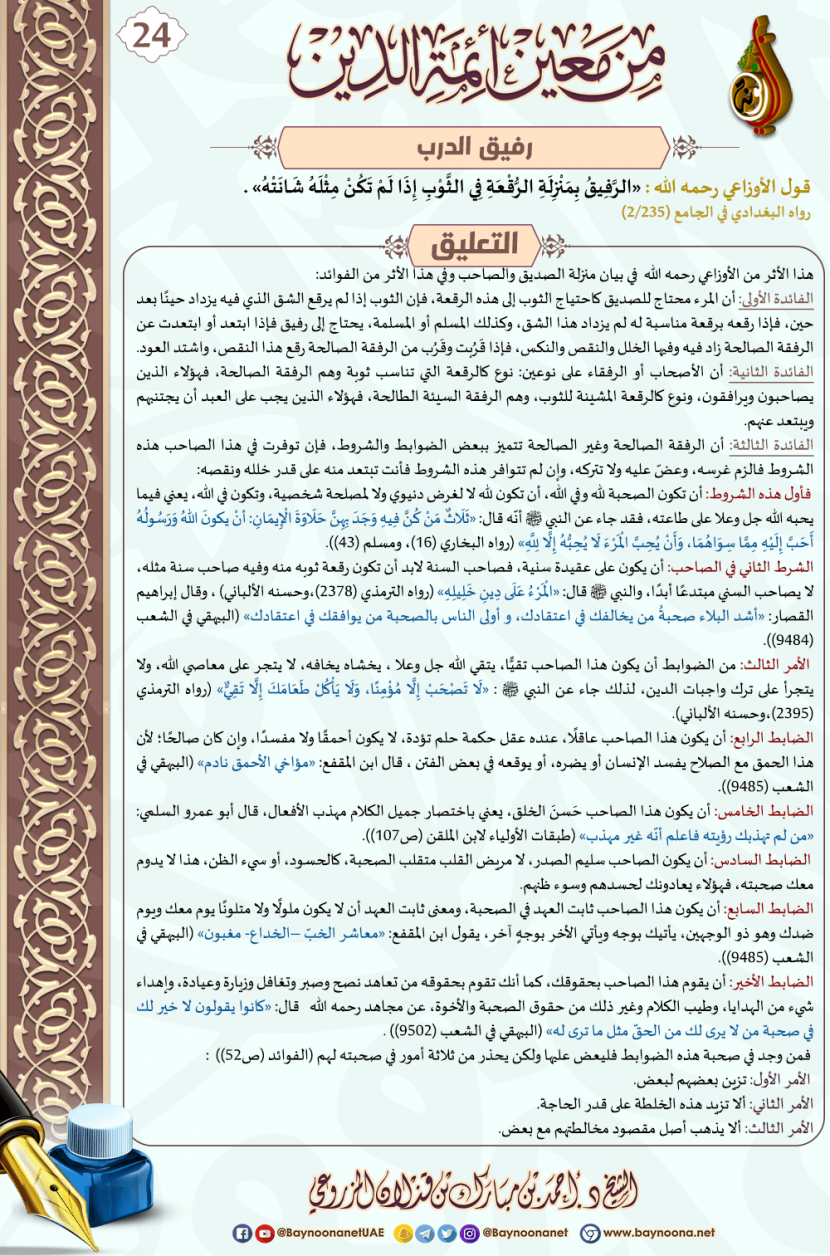 24
من معين أئمة الدين
رفيق الدرب
قول الأوزاعي رحمه الله : «الرَّفِيقُ بِمَنْزِلَةِ الرُّقْعَةِ فِي الثَّوْبِ إِذَا لَمْ تَكُنْ مِثْلَهُ شَانَتْهُ» .
رواه البغدادي في الجامع (2/235)
التعليق
هذا الأثر من الأوزاعي رحمه الله في بيان منزلة الصديق والصاحب وفي هذا الأثر من الفوائد:
الفائدة الأولى: أن المرء محتاج للصديق كاحتياج الثوب إلى هذه الرقعة، فإن الثوب إذا لم يرقع الشق الذي فيه يزداد حينًا بعد
حين، فإذا رقعه برقعة مناسبة له لم يزداد هذا الشق، وكذلك المسلم أو المسلمة، يحتاج إلى رفيق فإذا ابتعد أو ابتعدت عن
الرفقة الصالحة زاد فيه وفيها الخلل والنقص والنكس، فإذا قَرُبت وقَرُب من الرفقة الصالحة رقع هذا النقص، واشتد العود.
الفائدة الثانية: أن الأصحاب أو الرفقاء على نوعين: نوع كالرقعة التي تناسب ثوبة وهم الرفقة الصالحة، فهؤلاء الذين
يصاحبون ويرافقون، ونوع كالرقعة المشينة للثوب، وهم الرفقة السيئة الطالحة، فهؤلاء الذين يجب على العبد أن يجتنبهم
ويبتعد عنهم.
الفائدة الثالثة: أن الرفقة الصالحة وغير الصالحة تتميز ببعض الضوابط والشروط، فإن توفرت في هذا الصاحب هذه
الشروط فالزم غرسه، وعضّ عليه ولا تتركه، وإن لم تتوافر هذه الشروط فأنت تبتعد منه على قدر خلله ونقصه:
فأول هذه الشروط: أن تكون الصحبة لله وفي الله، أن تكون لله لا لغرض دنيوي ولا لمصلحة شخصية، وتكون في الله، يعني فيما
يحبه الله جل وعلا على طاعته، فقد جاء عن النبي ﷺ أنّه قال: «ثَلَاثٌ مَنْ كُنَّ فِيهِ وَجَدَ بِهِنَّ حَلَاوَةَ الْإِيمَانِ: أنْ يكونَ اللهُ وَرَسُولُهُ
أَحَبَّ إِلَيْهِ مِمَّا سِوَاهُمَا، وَأَنْ يُحِبَّ الْمَرْءَ لَا يُحِبُّهُ إِلَّا لِلَّهِ» (رواه البخاري (16)، ومسلم (43)).
الشرط الثاني في الصاحب: أن يكون على عقيدة سنية، فصاحب السنة لابد أن تكون رقعة ثوبه منه وفيه صاحب سنة مثله،
لا يصاحب السني مبتدعًا أبدًا، والنبي ﷺ قال: «الْمَرْءُ عَلَى دِينِ خَلِيلِهِ» (رواه الترمذي (2378)،وحسنه الألباني) ، وقال إبراهيم
القصار: «أشد البلاء صحبةُ من يخالفك في اعتقادك، و أولى الناس بالصحبة من يوافقك في اعتقادك» (البيهقي في الشعب
(9484)).
الأمر الثالث: من الضوابط أن يكون هذا الصاحب تقيًّا، يتقي الله جل وعلا ، يخشاه يخافه، لا يتجر على معاصي الله، ولا
يتجرأ على ترك واجبات الدين، لذلك جاء عن النبي ﷺ : «لَا تَصْحَبْ إِلَّا مُؤْمِنًا، وَلَا يَأْكُلْ طَعَامَكَ إِلَّا تَقِيٌّ» (رواه الترمذي
(2395)،وحسنه الألباني).
الضابط الرابع: أن يكون هذا الصاحب عاقلًا، عنده عقل حكمة حلم تؤدة، لا يكون أحمقًا ولا مفسدًا، وإن كان صالحًا؛ لأن
هذا الحمق مع الصلاح يفسد الإنسان أو يضره، أو يوقعه في بعض الفتن ، قال ابن المقفع: «مؤاخي الأحمق نادم» (البيهقي في
الشعب (9485)).
الضابط الخامس: أن يكون هذا الصاحب حَسنَ الخلق، يعني باختصار جميل الكلام مهذب الأفعال، قال أبو عمرو السلمي:
«من لم تهذبك رؤيته فاعلم أنّه غير مهذب» (طبقات الأولياء لابن الملقن (ص107)).
الضابط السادس: أن يكون الصاحب سليم الصدر، لا مريض القلب متقلب الصحبة، كالحسود، أو سيء الظن، هذا لا يدوم
معك صحبته، فهؤلاء يعادونك لحسدهم وسوء ظنهم.
الضابط السابع: أن يكون هذا الصاحب ثابت العهد في الصحبة، ومعنى ثابت العهد أن لا يكون ملولًا ولا متلونًا يوم معك ويوم
ضدك وهو ذو الوجهين، يأتيك بوجه ويأتي الأخر بوجهٍ آخر، يقول ابن المقفع: «معاشر الخبّ –الخداع- مغبون» (البيهقي في
الشعب (9485)).
الضابط الأخير: أن يقوم هذا الصاحب بحقوقك، كما أنك تقوم بحقوقه من تعاهد نصح وصبر وتغافل وزيارة وعيادة، وإهداء
شيء من الهدايا، وطيب الكلام وغير ذلك من حقوق الصحبة والأخوة، عن مجاهد رحمه الله قال: «كانوا يقولون لا خير لك
في صحبة من لا يرى لك من الحقّ مثل ما ترى له» (البيهقي في الشعب (9502)) .
فمن وجد في صحبة هذه الضوابط فليعض عليها ولكن يحذر من ثلاثة أمور في صحبته لهم (الفوائد (ص52)) :
الأمر الأول: تزين بعضهم لبعض.
الأمر الثاني: ألا تزيد هذه الخلطة على قدر الحاجة.
الأمر الثالث: ألا يذهب أصل مقصود مخالطتهم مع بعض.
الشيخ د. أحمد بن مبارك بن قذلان المزروعي
@BaynoonanetUAE @Baynoonanet www.baynoona.net